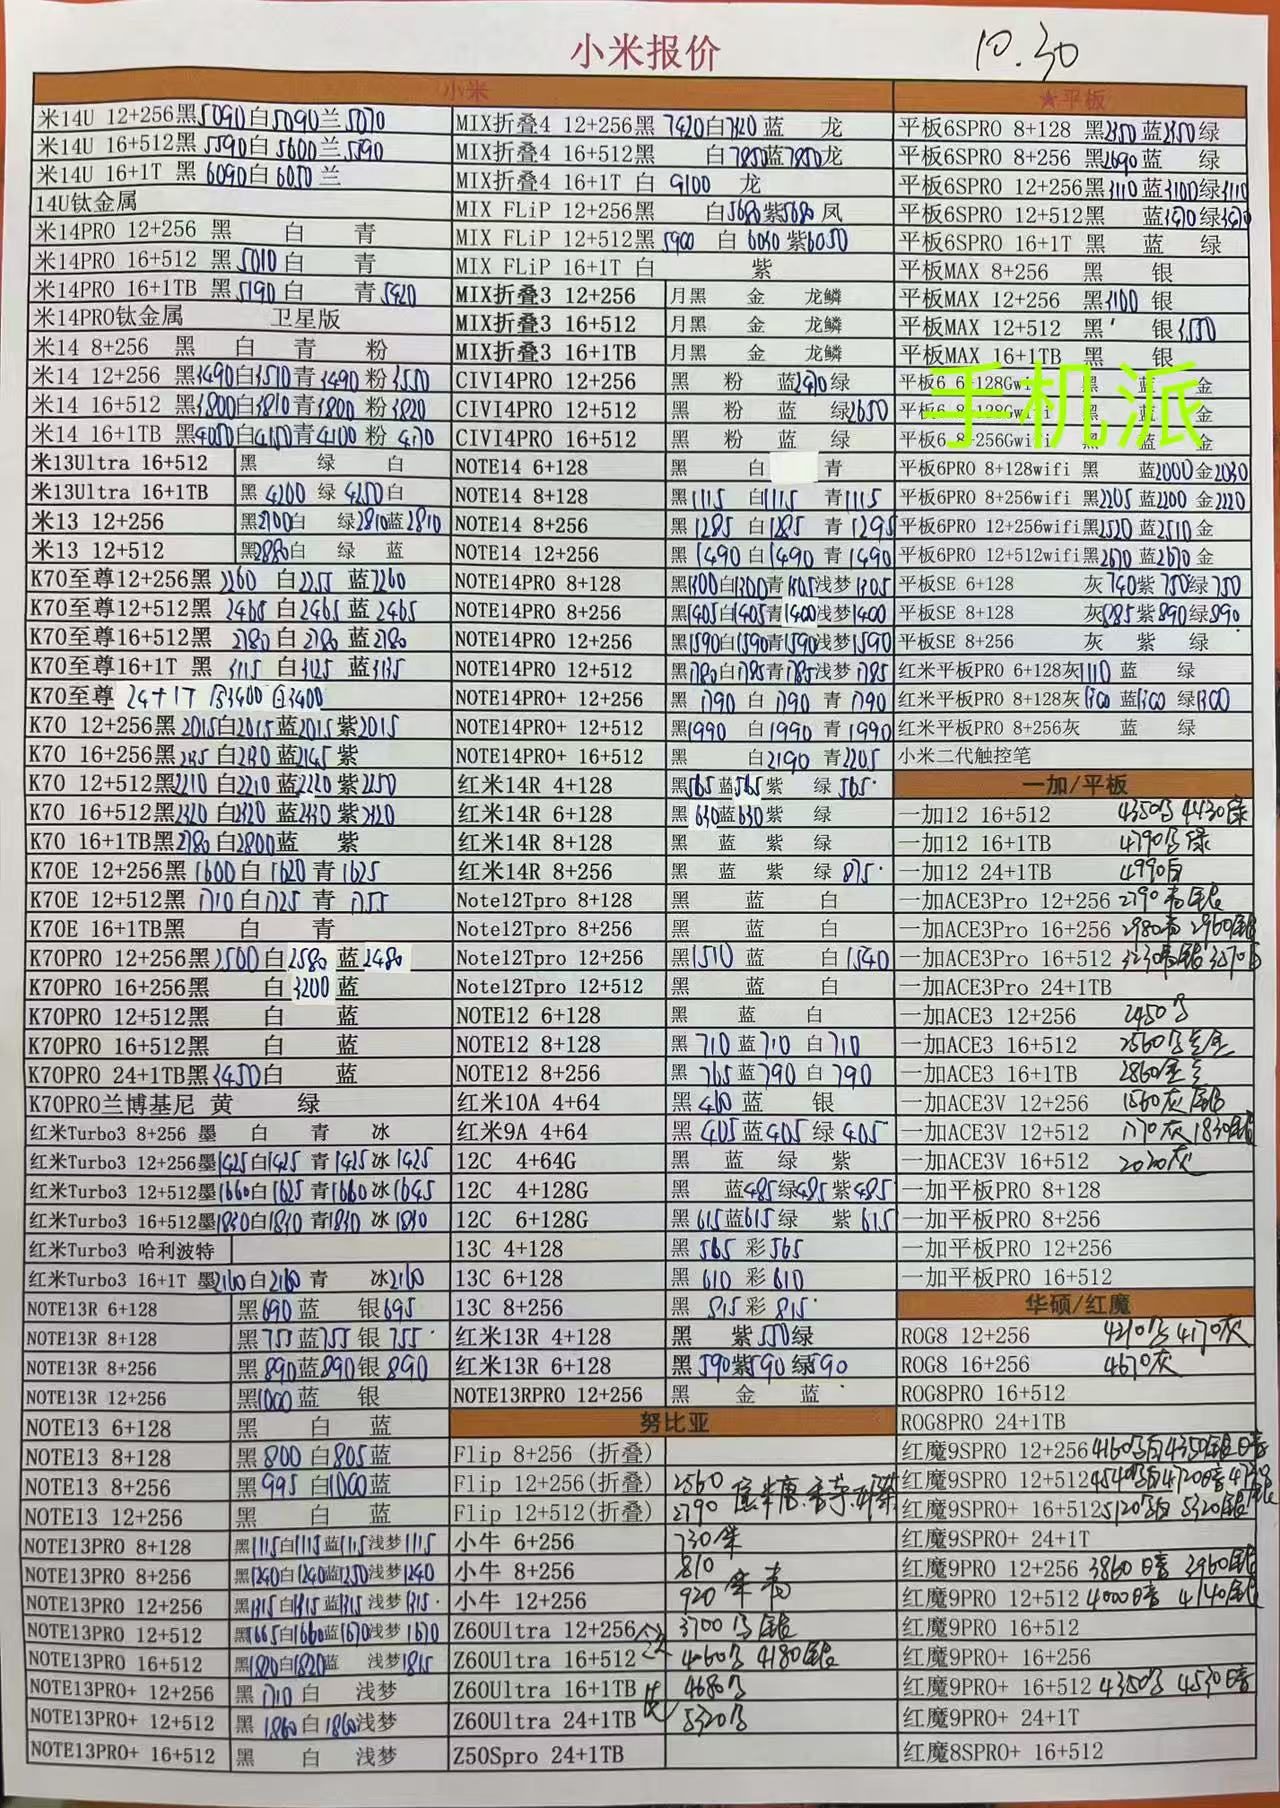 小米报价
10.30
小米
米14U 12+256黑5090白5090兰5070
米14U 16+512黑5590白5600兰5590
米14U 16+1T 黑6090白6050兰
14U钛金属
米14PRO 12+256 黑 白 青
米14PRO 16+512 黑5010白 青
米14PRO 16+1TB 黑5190白 青5420
米14PRO钛金属 卫星版
米14 8+256 黑 白 青 粉
米14 12+256 黑3490白3510青3490粉3550
米14 16+512 黑3800白3810青3800粉3820
米14 16+1TB 黑4050白4150青4100粉4170
米13Ultra 16+512 黑 绿 白
米13Ultra 16+1TB 黑4200 绿4250白
米13 12+256 黑2700白 绿2810蓝2810
米13 12+512 黑2880白 绿 蓝
K70至尊12+256黑2260 白2255 蓝2260
K70至尊12+512黑2465 白2465 蓝2465
K70至尊16+512黑2780 白2780 蓝2780
K70至尊16+1T 黑3115 白3125 蓝3135
K70至尊 24+1T 黑3400 白3400
K70 12+256黑2015白2015蓝2015紫2015
K70 16+256黑 白2130蓝2145紫
K70 12+512黑2210白2210蓝2220紫2250
K70 16+512黑2320白2320蓝2330紫2420
K70 16+1TB黑2780白2800蓝 紫
K70E 12+256黑1600白1620青1625
K70E 12+512黑1710白1725青1755
K70E 16+1TB黑 白 青
K70PRO 12+256黑2500白2580蓝2480
K70PRO 16+256黑 白3200蓝
K70PRO 12+512黑 白 蓝
K70PRO 16+512黑 白 蓝
K70PRO 24+1TB黑3450白 蓝
K70PRO兰博基尼 黄 绿
红米Turbo3 8+256 墨 白 青 冰
红米Turbo3 12+256墨1425白1425青1425冰1425
红米Turbo3 12+512墨1660白1625青1660冰1645
红米Turbo3 16+512墨1830白1830青1830冰1830
红米Turbo3 哈利波特
红米Turbo3 16+1T 墨2160白2160青 冰2160
NOTE13R 6+128 黑690蓝 银695
NOTE13R 8+128 黑755蓝755银755
NOTE13R 8+256 黑890蓝890银890
NOTE13R 12+256 黑1000蓝 银
NOTE13 6+128 黑 白 蓝
NOTE13 8+128 黑800白805蓝
NOTE13 8+256 黑995白1000蓝
NOTE13 12+256 黑 白 蓝
NOTE13PRO 8+128 黑1115白1115蓝1115浅梦1115
NOTE13PRO 8+256 黑1240白1240蓝1250浅梦1240
NOTE13PRO 12+256 黑1315白1315蓝1315浅梦1315
NOTE13PRO 12+512 黑1665白1660蓝1670浅梦1670
NOTE13PRO 16+512 黑1820白1820蓝 浅梦1815
NOTE13PRO+ 12+256 黑1710白 浅梦
NOTE13PRO+ 12+512 黑1860白1860浅梦
NOTE13PRO+ 16+512 黑 白 浅梦
MIX折叠4 12+256黑7420白7420蓝 龙
MIX折叠4 16+512黑 白7850蓝7850龙
MIX折叠4 16+1T 白 9100 龙
MIX FLiP 12+256黑 白5680紫5680凤
MIX FLiP 12+512黑5900 白6030紫6050
MIX FLiP 16+1T 白 紫
MIX折叠3 12+256 月黑 金 龙鳞
MIX折叠3 16+512 月黑 金 龙鳞
MIX折叠3 16+1TB 月黑 金 龙鳞
CIVI4PRO 12+256 黑 粉 蓝2470绿
CIVI4PRO 12+512 黑 粉 蓝 绿2650
CIVI4PRO 16+512 黑 粉 蓝 绿
NOTE14 6+128 黑 白 青
NOTE14 8+128 黑1115 白1115 青1115
NOTE14 8+256 黑1285 白1285 青1295
NOTE14 12+256 黑1490白1490青1490
NOTE14PRO 8+128 黑1300白1300青1305浅梦1305
NOTE14PRO 8+256 黑1405白1405青1400浅梦1400
NOTE14PRO 12+256 黑1590白1590青1590浅梦1590
NOTE14PRO 12+512 黑1780白1785青1785浅梦1785
NOTE14PRO+ 12+256 黑1790 白1790 青1790
NOTE14PRO+ 12+512 黑1990 白1990 青1990
NOTE14PRO+ 16+512 黑 白2190 青2205
红米14R 4+128 黑565蓝565紫 绿565
红米14R 6+128 黑630蓝630紫 绿
红米14R 8+128 黑 蓝 紫 绿
红米14R 8+256 黑 蓝 紫 绿875
Note12Tpro 8+128 黑 蓝 白
Note12Tpro 8+256 黑 蓝 白
Note12Tpro 12+256 黑1510蓝 白1540
Note12Tpro 12+512 黑 蓝 白
NOTE12 6+128 黑 蓝 白
NOTE12 8+128 黑710蓝710 白710
NOTE12 8+256 黑765蓝790白790
红米10A 4+64 黑410蓝 银
红米9A 4+64 黑405蓝405绿405
12C 4+64G 黑 蓝 绿 紫
12C 4+128G 黑 蓝485绿485紫485
12C 6+128G 黑615蓝615绿 紫615
13C 4+128 黑565 彩565
13C 6+128 黑610 彩610
13C 8+256 黑815彩815
红米13R 4+128 黑 紫550绿
红米13R 6+128 黑590紫590绿590
NOTE13RPRO 12+256 黑 金 蓝
努比亚
Flip 8+256 (折叠)
Flip 12+256(折叠) 2560
Flip 12+512(折叠) 2790
小牛 6+256 730
小牛 8+256 810
小牛 12+256 920
Z60Ultra 12+256 3700黑银
Z60Ultra 16+512 4060黑 4180银
Z60Ultra 16+1TB 4680黑
Z60Ultra 24+1TB 5320黑
Z50Spro 24+1TB
★平板
平板6SPRO 8+128 黑2350蓝2350绿
平板6SPRO 8+256 黑2690蓝 绿
平板6SPRO 12+256黑3110蓝3100绿3110
平板6SPRO 12+512黑 蓝3470绿3470
平板6SPRO 16+1T 黑 蓝 绿
平板MAX 8+256 黑 银
平板MAX 12+256 黑3100 银
平板MAX 12+512 黑 银3550
平板MAX 16+1TB 黑 银
手机派
平板6 6+128Gwifi 黑 蓝 金
平板6 8+128Gwifi 黑 蓝 金
平板6 8+256Gwifi 黑 蓝 金
平板6PRO 8+128wifi 黑 蓝2000金2030
平板6PRO 8+256wifi 黑2205蓝2200金2220
平板6PRO 12+256wifi黑2520蓝2510金
平板6PRO 12+512wifi黑2670蓝2670金
平板SE 6+128 灰740紫750绿750
平板SE 8+128 灰885紫890绿890
平板SE 8+256 灰 紫 绿
红米平板PRO 6+128灰1110蓝 绿
红米平板PRO 8+128灰1300蓝1300绿1300
红米平板PRO 8+256灰 蓝 绿
小米二代触控笔
一加/平板
一加12 16+512 4350黑 4430绿
一加12 16+1TB 4790黑绿
一加12 24+1TB 4990白
一加ACE3Pro 12+256 2790青银
一加ACE3Pro 16+256 2980青 2960银
一加ACE3Pro 16+512 3230青银
一加ACE3Pro 24+1TB
一加ACE3 12+256 2450黑
一加ACE3 16+512 2560黑
一加ACE3 16+1TB 2860
一加ACE3V 12+256 1560灰银
一加ACE3V 12+512 1770灰 1830银
一加ACE3V 16+512 2020灰
一加平板PRO 8+128
一加平板PRO 8+256
一加平板PRO 12+256
一加平板PRO 16+512
华硕/红魔
ROG8 12+256 4210黑 4170灰
ROG8 16+256 4670灰
ROG8PRO 16+512
ROG8PRO 24+1TB
红魔9SPRO 12+256 4160黑白4350银暗
红魔9SPRO 12+512 4540黑白4720暗
红魔9SPRO+ 16+512 5120黑白 5320银
红魔9SPRO+ 24+1T
红魔9PRO 12+256 3860暗 3960银
红魔9PRO 12+512 4000暗 4140银
红魔9PRO 16+512
红魔9PRO+ 16+256
红魔9PRO+ 16+512 4350黑 4530暗
红魔9PRO+ 24+1T
红魔8SPRO+ 16+512